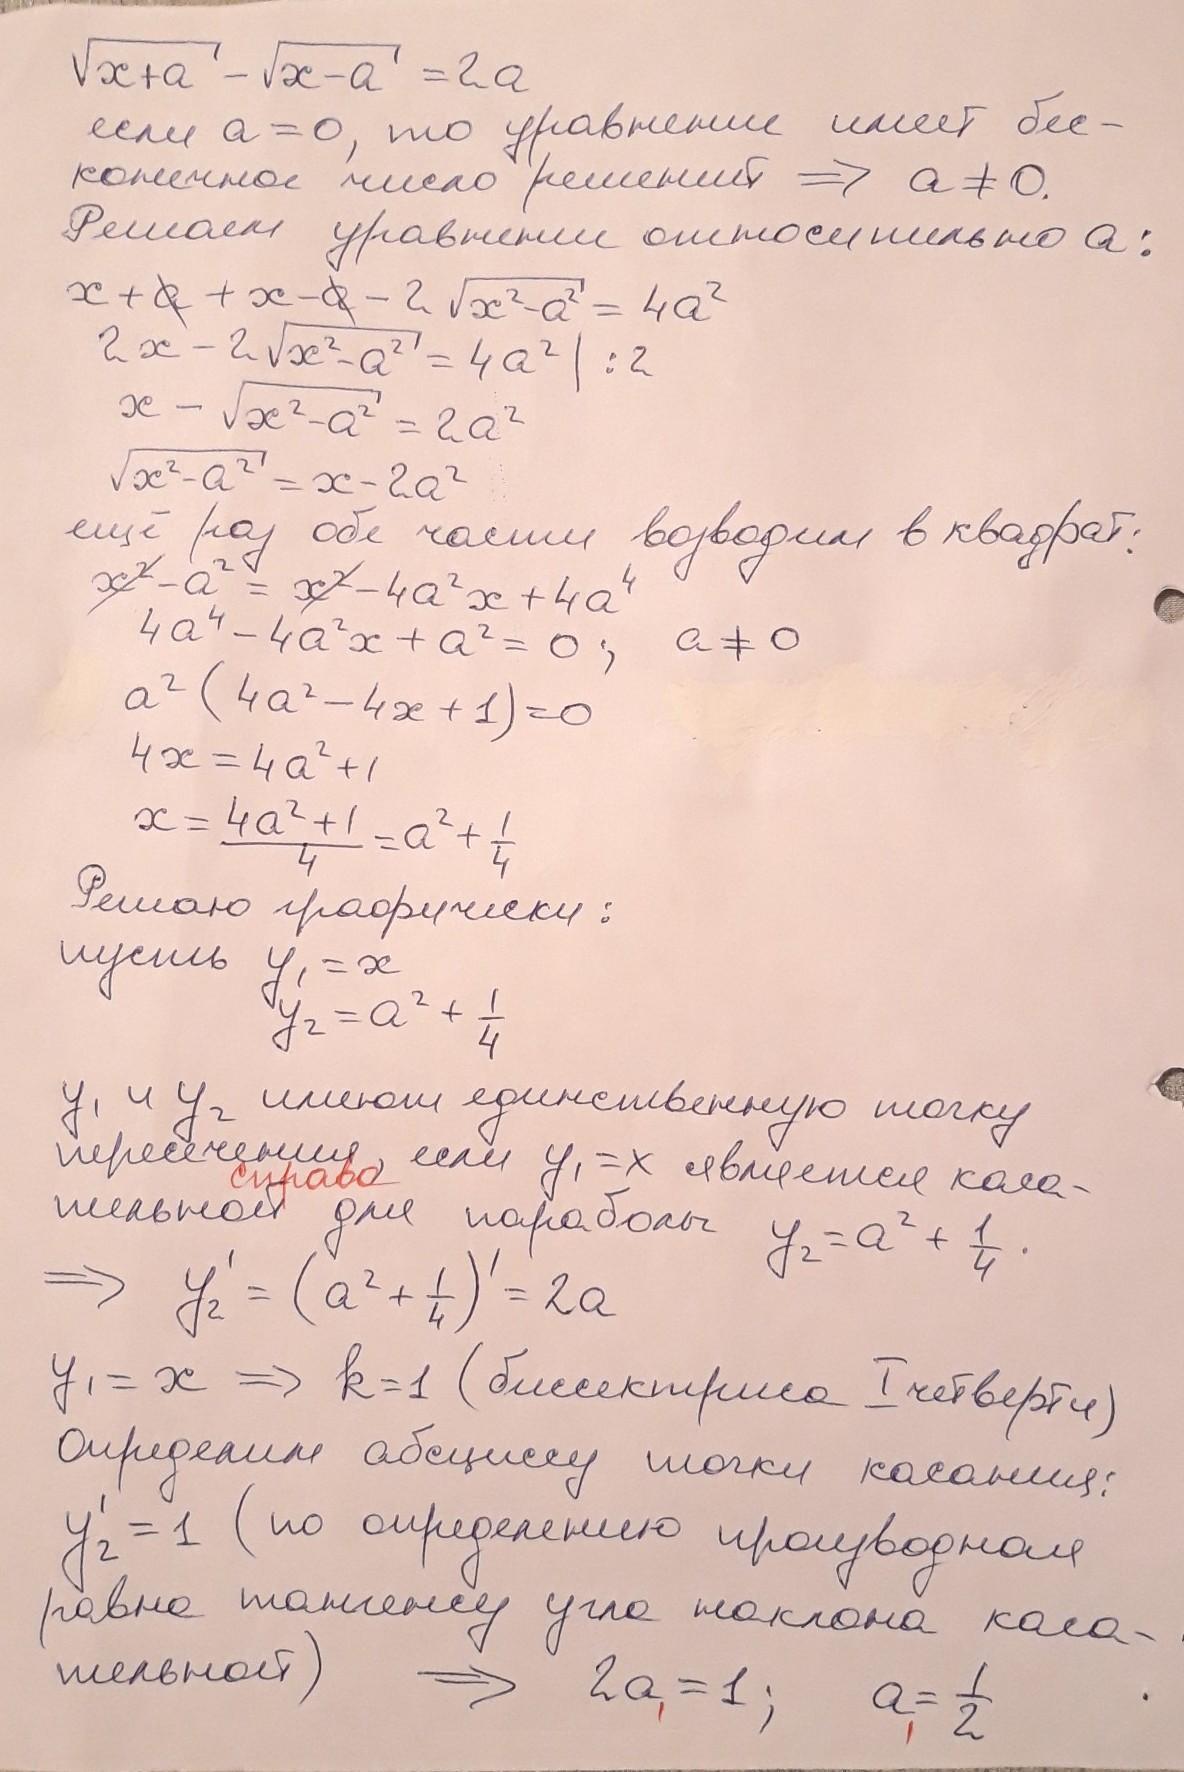 √x+a - √x-a = 2a
если a = 0, то уравнение имеет бес-
конечное число решений ⇒ a ≠ 0.
Решаем уравнение относительно a:
x + a + x - a - 2√x²-a² = 4a²
2x - 2√x²-a² = 4a² | :2
x - √x²-a² = 2a²
√x²-a² = x - 2a²
ещё раз обе части возводим в квадрат:
x² - a² = x² - 4a²x + 4a⁴
4a⁴ - 4a²x + a² = 0; a ≠ 0
a² (4a² - 4x + 1) = 0
4x = 4a² + 1
x = (4a²+1)/4 = a² + 1/4
Решаю графически:
пусть y₁ = x
y₂ = a² + 1/4
y₁ и y₂ имеют единственную точку
пересечения, если y₁ = x является каса-
справа
тельной для параболы y₂ = a² + 1/4.
⇒ y₂' = (a² + 1/4)' = 2a
y₁ = x ⇒ k = 1 (биссектриса I четверти)
Определим абсциссу точки касания:
y₂' = 1 (по определению производная
равна тангенсу угла наклона каса-
тельной) ⇒ 2a₁ = 1; a₁ = 1/2